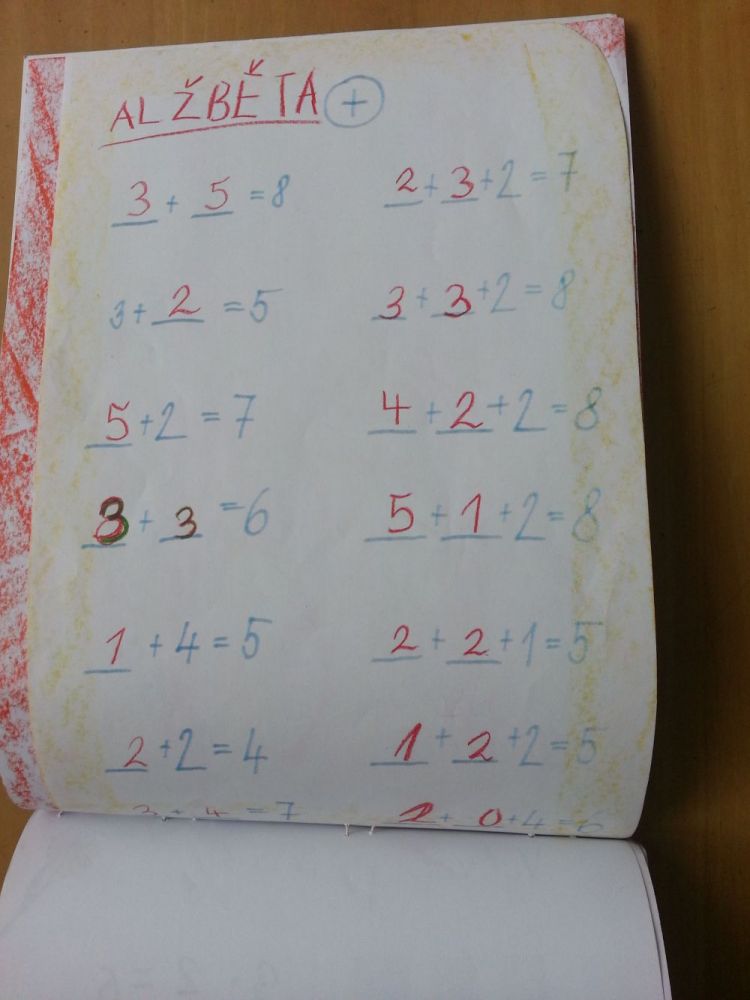 ALŽBĚTA +
3 + 5 = 8
2 + 3 + 2 = 7
3 + 2 = 5
3 + 3 + 2 = 8
5 + 2 = 7
4 + 2 + 2 = 8
3 + 3 = 6
5 + 1 + 2 = 8
1 + 4 = 5
2 + 2 + 1 = 5
2 + 2 = 4
1 + 2 + 2 = 5
3 + 4 = 7
2 + 0 + 4 = 6